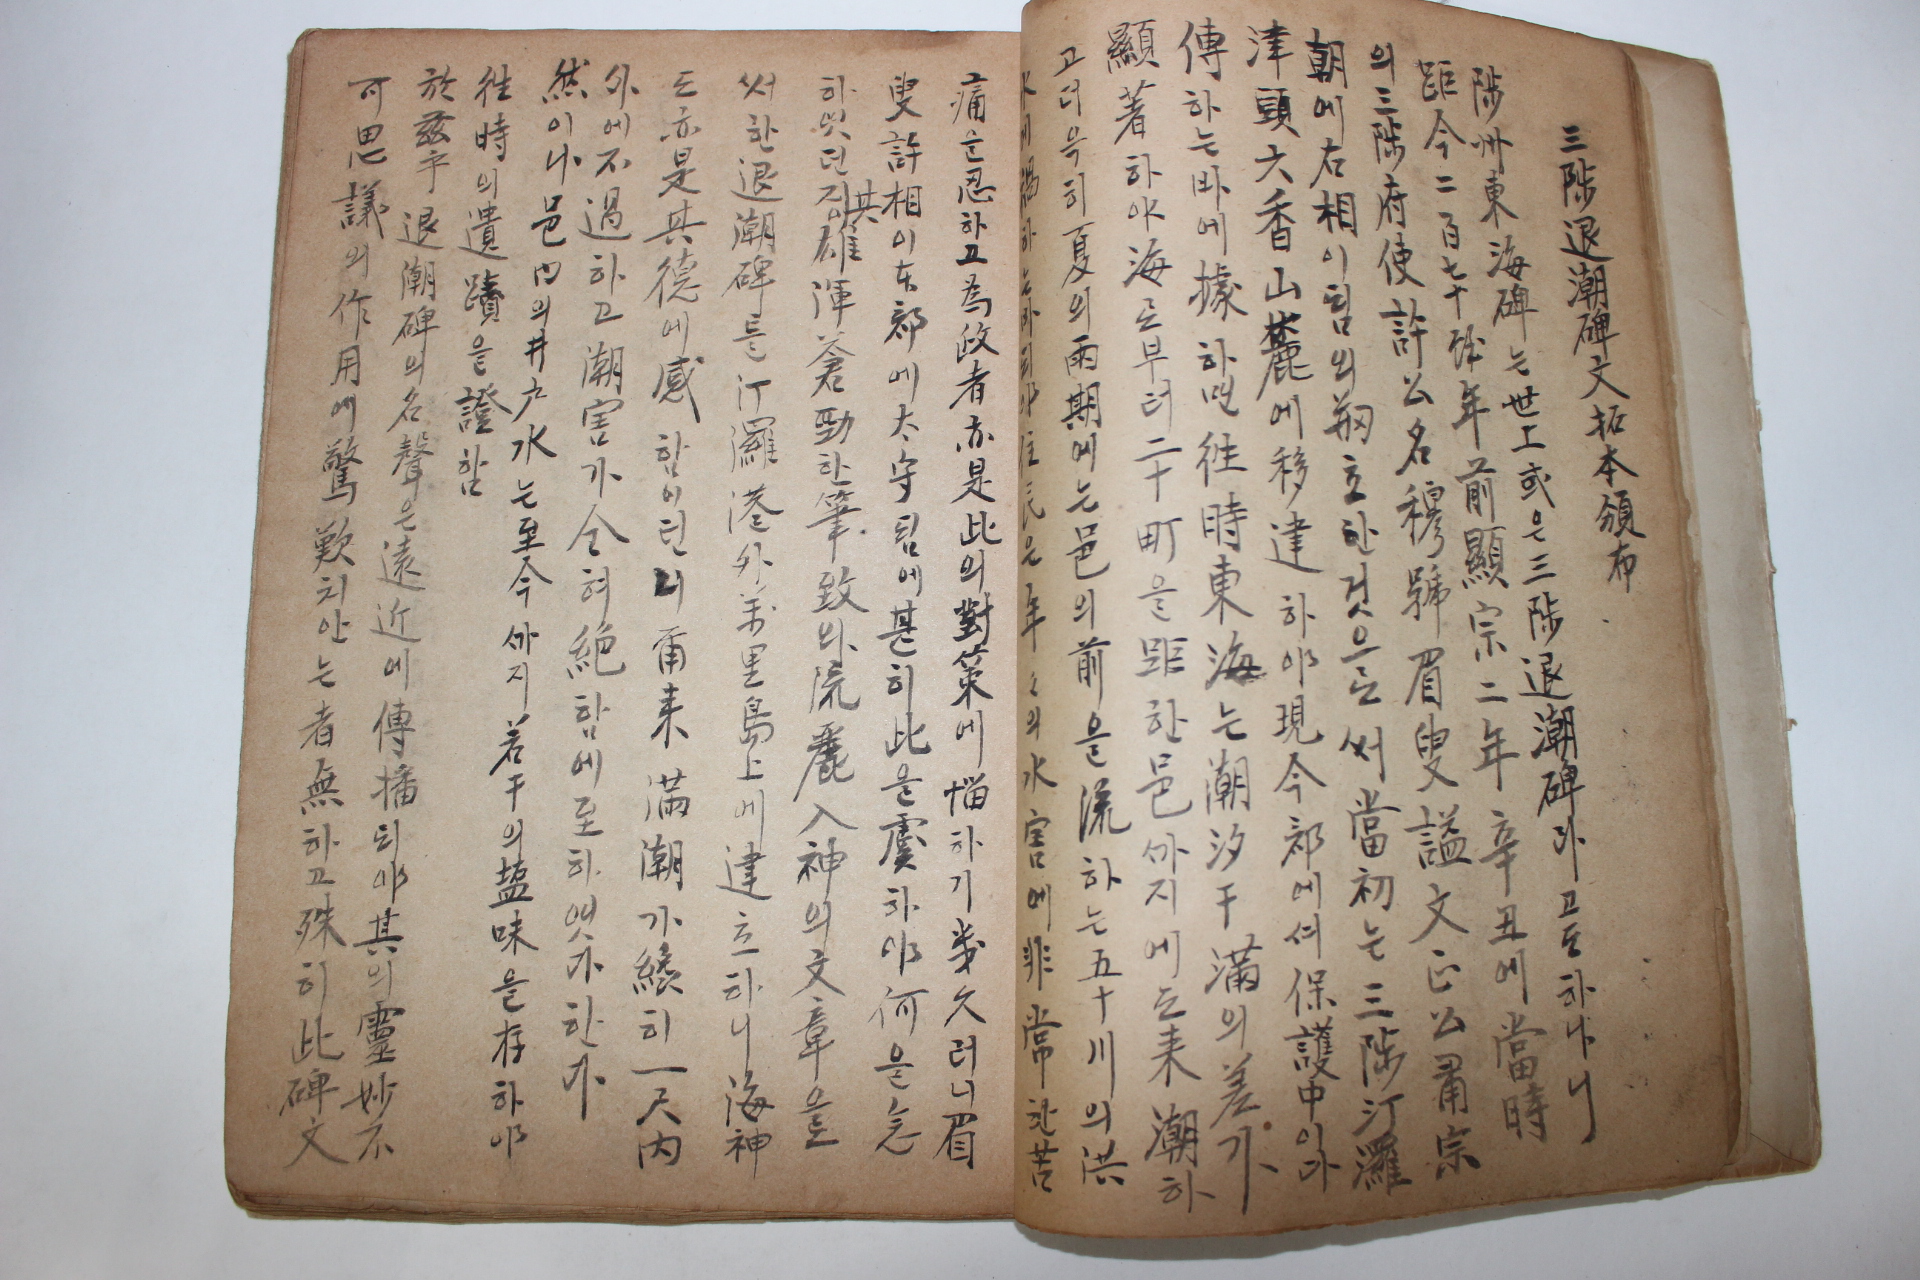 三陟退潮碑文拓本頒布
陟州東海碑는世上或은三陟退潮碑라고도하나니
距今二百七十餘年前顯宗二年辛丑에當時
의三陟府使許公名穆號眉叟謚文正公肅宗
朝에右相이됨의刱立한것으로써當初는三陟汀羅
津頭六香山麓에移建하야現今郡에셔保護中이라
傳하는바에據하면徃時東海는潮汐干滿의差가
顯著하야海로부터二十町을距한邑까지에도来潮하
고더욱히夏의雨期에는邑의前을流하는五十川의洪
水에禍하는바되야住民은年々의水害에非常한苦
痛을忍하고為政者亦是此의對策에惱하기幾久러니眉
叟許相이本郡에太守됨에甚히此을虞하야何을念
하엿던지其雄渾蒼勁한筆致와流麗入神의文章을
써한退潮碑를汀羅港外万里島上에建立하니海神
도亦是其德에感함이던니爾来滿潮가纔히一尺内
外에不過하고潮害가全혀絶함에至하엿다한다
然이나邑内의井户水는至今까지若干의塩味을存하야
徃時의遺蹟을證함
於兹乎退潮碑의名聲은遠近에傳播되야其의靈妙不
可思議의作用에驚歎치안는者無하고殊히此碑文